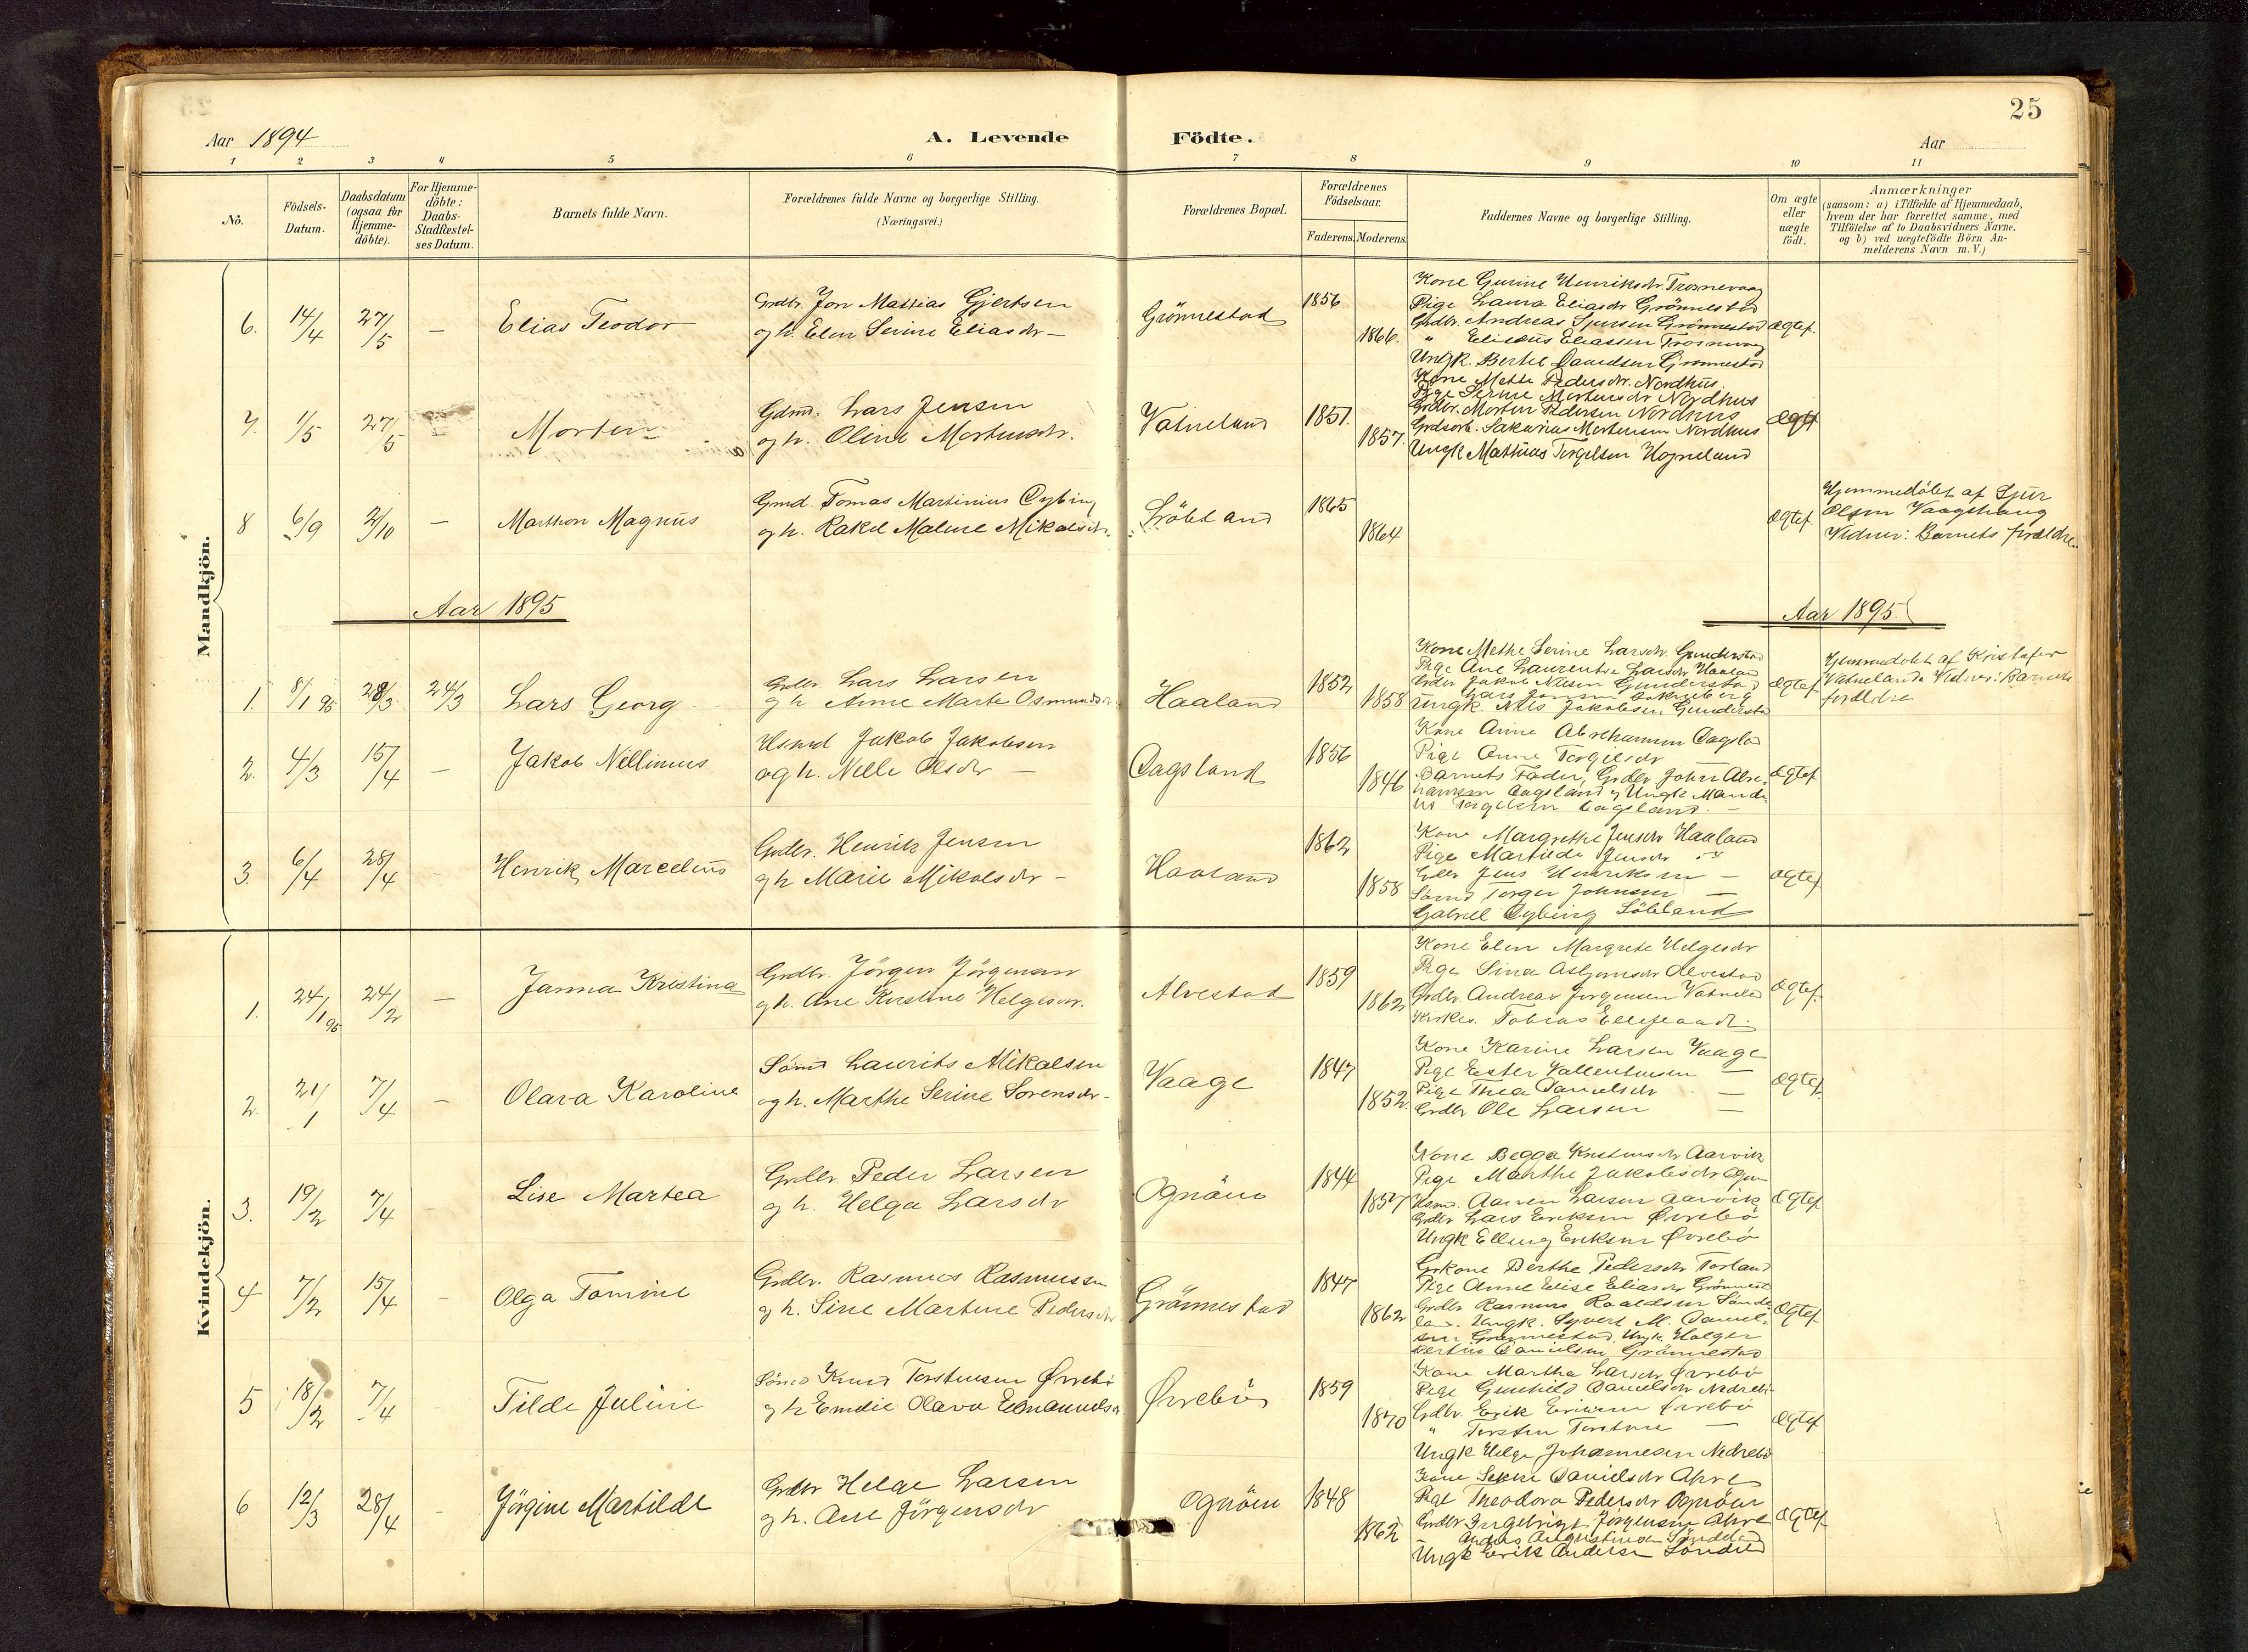 25
Aar 1894
A. Levende Födte.
Aar
1 2 3 4 5 6 7 8 9 10 11
No.
Födsels-
Datum.
Daabsdatum
(ogsaa for
Hjemme-
döbte).
For Hjemme-
döbte:
Daabs-
Stadfæstel-
ses Datum.
Barnets fulde Navn.
Forældrenes fulde Navne og borgerlige Stilling.
(Næringsvei.)
Forældrenes Bopæl.
Forældrenes
Födselsaar.
Faderens. Moderens.
Faddernes Navne og borgerlige Stilling.
Om ægte
eller
uægte
födt.
Anmærkninger
(saasom: a) i Tilfælde af Hjemmedaab,
hvem der har forrettet samme, med
Tilföielse af to Daabsvidners Navne,
og b) ved uægtefödte Börn An-
melderens Navn m.V.)
Mandkjön.
6. 14/4 27/5 — Elias Teodor
Grdbr. Jon Mattias Gjertsen
og h. Elen Serine Eliasdr —
Grönnestad 1856 1866.
Kone Gurine Henriksdr.
Pige Laura Eliasdr Grönnestad
Grdbr. Andreas Grönnestad
" Eliseus Eliassen
Ungk. Bertel Danielsen Grönnestad
ægtef.
7. 1/5 27/5 — Morten
Gdmd. Lars Jensen
og h. Oline Mortensdr.
Vatneland 1851. 1857.
Kone Mette Pedersdr. Nordhus
Pige Serine Mortensdr Nordhus
Grdbr. Morten Pedersen Nordhus
Sakarias Mortensen Nordhus
Ungk Mathias Torgilsen
ægtf
8 6/9 2/10 — Marthon Magnus
Gmd. Tomas Martinius Nybing
og h. Rakel Maline Mikalsdr.
1865 1864
ægtef.
Hjemmedöbt af Sjur
Olsen Vaagshaug
Vidner: Barnets forældre.
Aar 1895
Aar 1895.
1. 8/1 95 28/3 24/3 Lars Georg
Grdbr Lars Larsen
og h Anne Marte Osmundsdr
Haaland 1852 1858
Kone Methe Serine Larsdr. Gunderstad
Pige Ane Laurentse Larsdr Haaland
Grdbr Jakob Nilsen Gunderstad
Lars Jonsen
Ungk. Nils Jakobsen Gunderstad
ægtef.
Hjemmedöbt af Kristofer
Vatneland. Vidner: Barnets
forældre
2. 4/3 15/4 — Jakob Nellinius
Husmd Jakob Jakobsen
og h. Nelle Olsdr —
Dagsland 1856 1846
Kone Anne Abrahamsen Dagsland
Pige Anne Torgilsdr
Barnets Fader, Grdbr John Abra-
hamsen Dagsland og Ungk Mandi-
us Torgilsen Dagsland. —
ægtef
3. 6/4 28/4 Henrik Marcelius
Grdbr. Henrik Jensen
og h Marie Mikalsdr —
Haaland 1862 1858
Kone Margrethe Jensdr Haaland
Pige Martilde Jensdr "
Grdbr Jens Henriksen —
Sömd Torger Johnsen —
Gabriel Nybing
ægtef
Kvindekjön.
1. 24/1 95 24/2 — Janna Kristina
Grdbr. Jörgen Jörgensen
og h. Ane Kirstine Helgesdr.
Alvestad 1859 1862
Kone Elen Margrete Helgesdr
Pige Sina Alvestad
Grdbr. Andreas Jörgensen
Kirkes. Tobias
ægtef.
2. 21/1 7/4 — Olava Karoline
Sömd Laurits Mikalsen
og h. Marthe Serine Sorensdr —
Vaage 1847 1852.
Kone Karine Larsen Vaage
Pige Ester —
Pige Thea Danielsdr —
Grdbr Ole Larsen —
ægtef.
3. 19/2 7/4 Lise Martea
Grdbr. Peder Larsen
og h. Helga Larsdr
Ognöen 1844 1857
Kone Begga Aarvik
Pige Marthe Jakobsdr
Husmd. Aanen Larsen Aarvik
Grdbr Lars Eriksen Övrebö
Ungk Elling Eriksen Övrebö
ægtef
4 7/2 15/4 Olga Tomine
Grdbr. Rasmus Rasmussen
og h. Sine Martine Pedersdr
Grönnestad 1847 1862
Berthe Pedersdr
Pige Anne Elise Eliasdr Grönnest
Grdbr Rasmus Sönde-
land. Ungk. Syvert M. Daniel-
sen Grönnestad. Ungk. Holger
Bertin Danielsen Grönnestad
ægtef
5 18/2 7/4 Tilde Juline
Sömd Knud Torstensen Övrebö
og h Emilie Olava Emanuelsdr
Övrebö 1859 1870
Kone Martha Larsdr Övrebö
Pige Gunhild Danielsdr Nedrebö
Grdbr. Erik Eriksen Övrebö
" Torsten Torstensen —
Ungk Helge Johannesen Nedrebö
ægtef
6 12/3 28/4 Jörgine Martilde
Grdbr Helge Larsen
og h. Ane Jörgensdr
Ognöen 1848 1862
Kone Danielsdr Ahre
Pige Theodora Pedersdr Ognöen
Grdbr Ingebrigt Jörgensen Ahre
Anders Söndeland
Ungk Erik Andersen Sondeld
ægtef